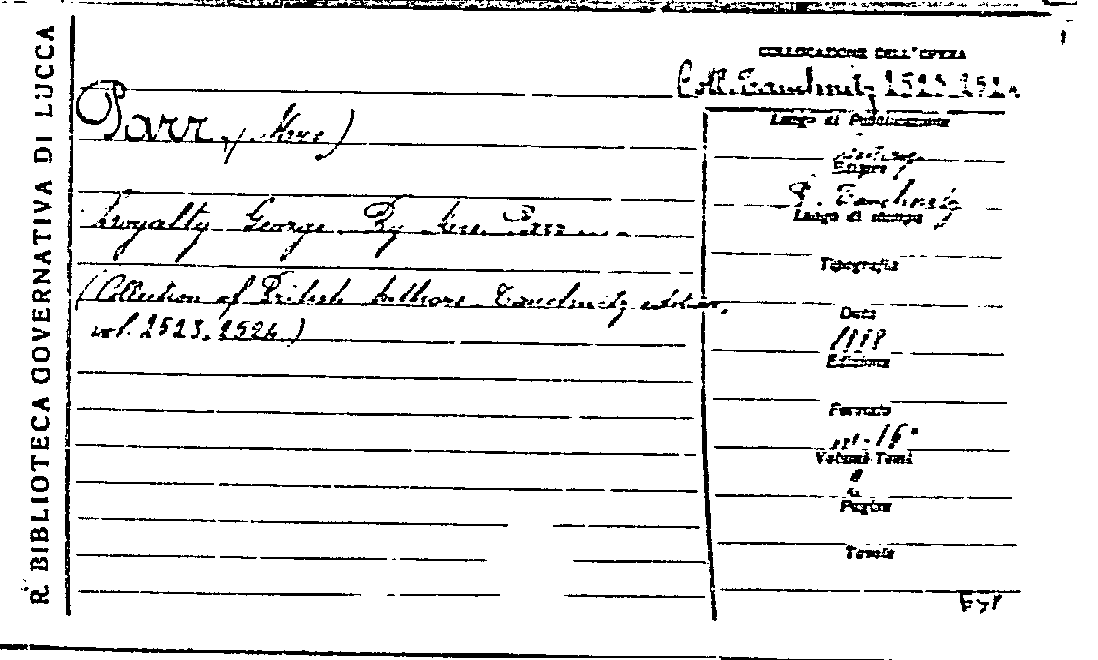 R. BIBLIOTECA GOVERNATIVA DI LUCCA
COLLOCAZIONE DELL'OPERA
Coll. Tauchnitz 2523-2524
Parr, (Mrs)
Luogo di Pubblicazione
Loyalty George. By Mrs. Parr
(Collection of British Authors Tauchnitz edition,
vol. 2523, 2524)
B. Tauchnitz
Luogo di stampa
Tipografia
Data
1888
Edizione
Formato
in-16°
Volumi Tomi
2
Pagine
Tavole